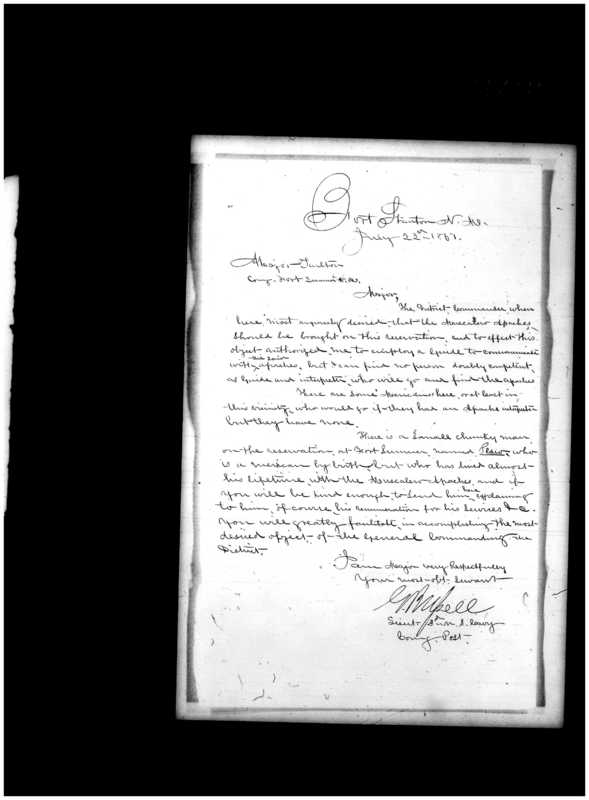 Fort Stanton N. M.
July 22nd 1867.
Major Tarlton
Comg. Fort Sumner N.M.
Major,
The District Commander, when
here, most anxiously desired that the Mescalero Apaches
should be brought on this reservation, and to effect this
object authorized me to employ a guide to communicate
with said apaches, but I can find no person doubly competent,
as Guide and interpreter who will go and find the apaches
There are some Mexicans here, or at least in
this vicinity, who would go if they had an Apache interpreter
but they have none.
There is a small chunky man
on the reservation, at Fort Sumner, named, who
is a mexican by birth, but who has lived almost
his lifetime with the Mescalero Apaches, and if
you will be kind enough to send him here explaining
to him, of course, his remuneration for his services &c.
You will greatly facilitate in accomplishing the most
desired object of the General Commanding the
District.
I am Major very Respectfully
Your most obt. Servant
Lieut 3rd U. S. Cavy
Comg. Post.